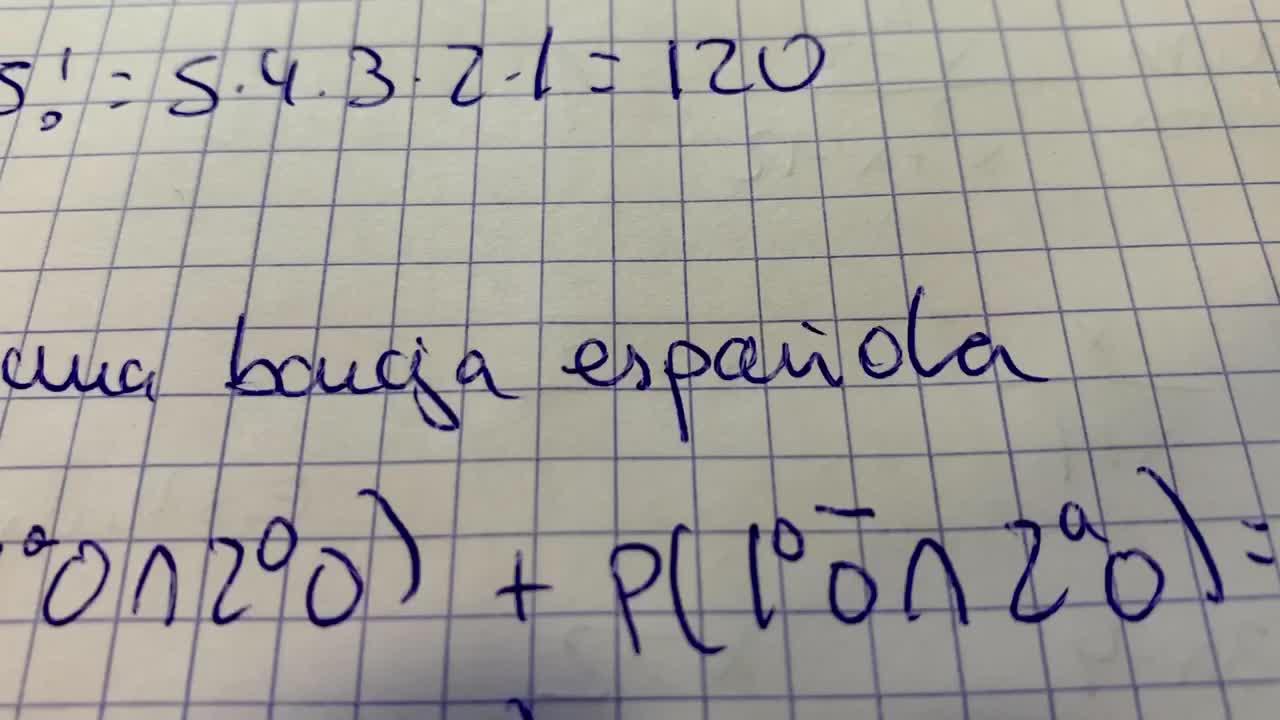 5! = 5·4·3·2·1 = 120
una baraja española
ªO∩2ºO) + P(1ºŌ∩2ªO) =